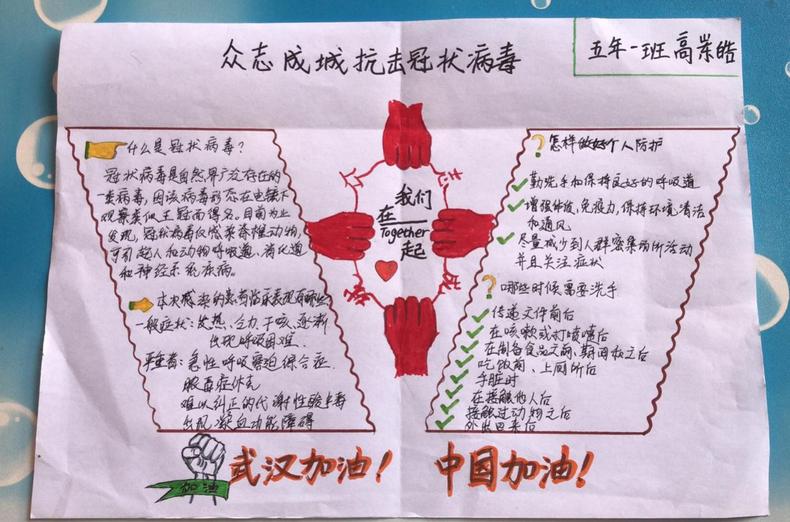 众志成城抗击冠状病毒
五年一班高崇皓
什么是冠状病毒?
冠状病毒是自然界广泛存在的
一类病毒,因该病毒形态在电镜下
观察类似王冠而得名。目前为止
发现,冠状病毒仅感染脊椎动物,
可引起人和动物呼吸道、消化道
和神经系统疾病。
本次感染的患者临床表现有哪些?
一般症状:发热、乏力、干咳、逐渐
出现呼吸困难.
严重者:急性呼吸窘迫综合症.
脓毒症休克
难以纠正的代谢性酸中毒
出现凝血功能障碍
我们
在
Together
一起
怎样做好个人防护
勤洗手和保持良好的呼吸道
增强体质、免疫力,保持环境清洁
和通风
尽量减少到人群密集场所活动
并且关注症状
哪些时候需要洗手
传递文件前后
在咳嗽或打喷嚏后
在制备食品之前、期间和之后
吃饭前、上厕所后
手脏时
在接触他人后
接触过动物之后
外出回来后
加油
武汉加油!
中国加油!